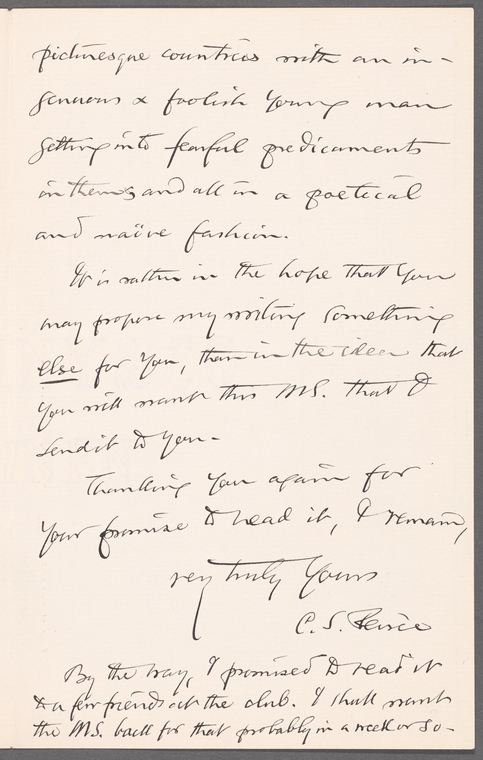 picturesque countries with an in-
genuous & foolish young man
getting into fearful predicaments
in them, and all in a poetical
and naïve fashion.
It is rather in the hope that you
may propose my writing something
else for you, than in the idea that
you will want this MS. that I
send it to you-
Thanking you again for
your promise to read it, I remain,
very truly yours
C. S. Peirce
By the way, I promised to read it
to a few friends at the club. I shall want
the MS. back for that probably in a week or so-